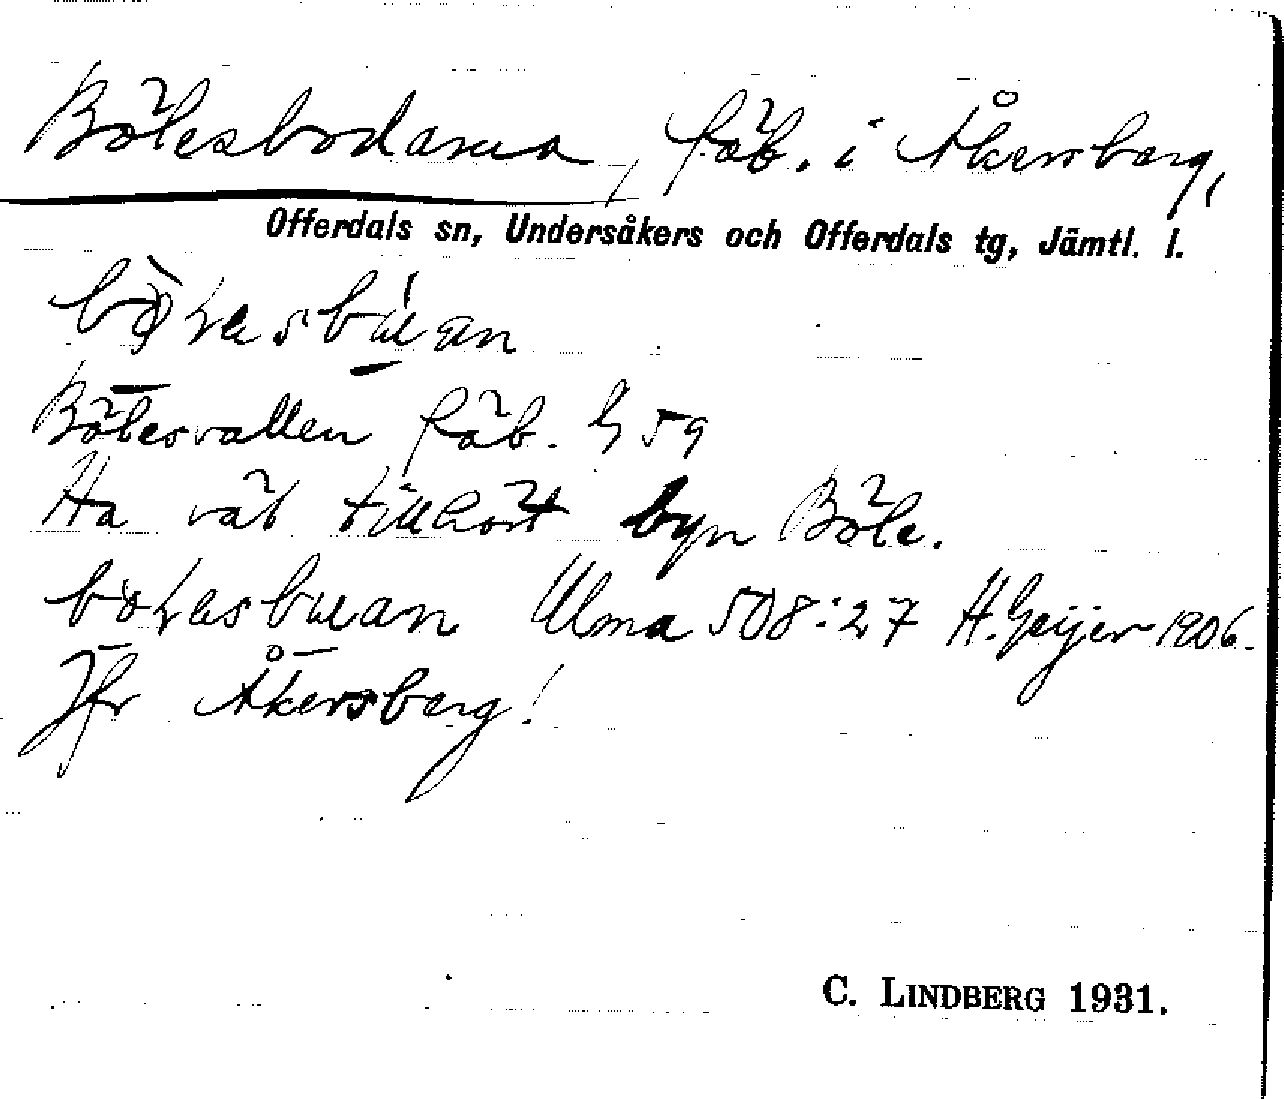 Bölesbodarna, fäb. i Åkersberg,
Offerdals sn, Undersåkers och Offerdals tg, Jämtl. l.
Bölesvallen fäb. G 59
Ha väl tillhört byn Böle.
böLesbuan Ulma 508:27 H. Geijer 1906.
Jfr Åkersberg!
C. LINDBERG 1931.